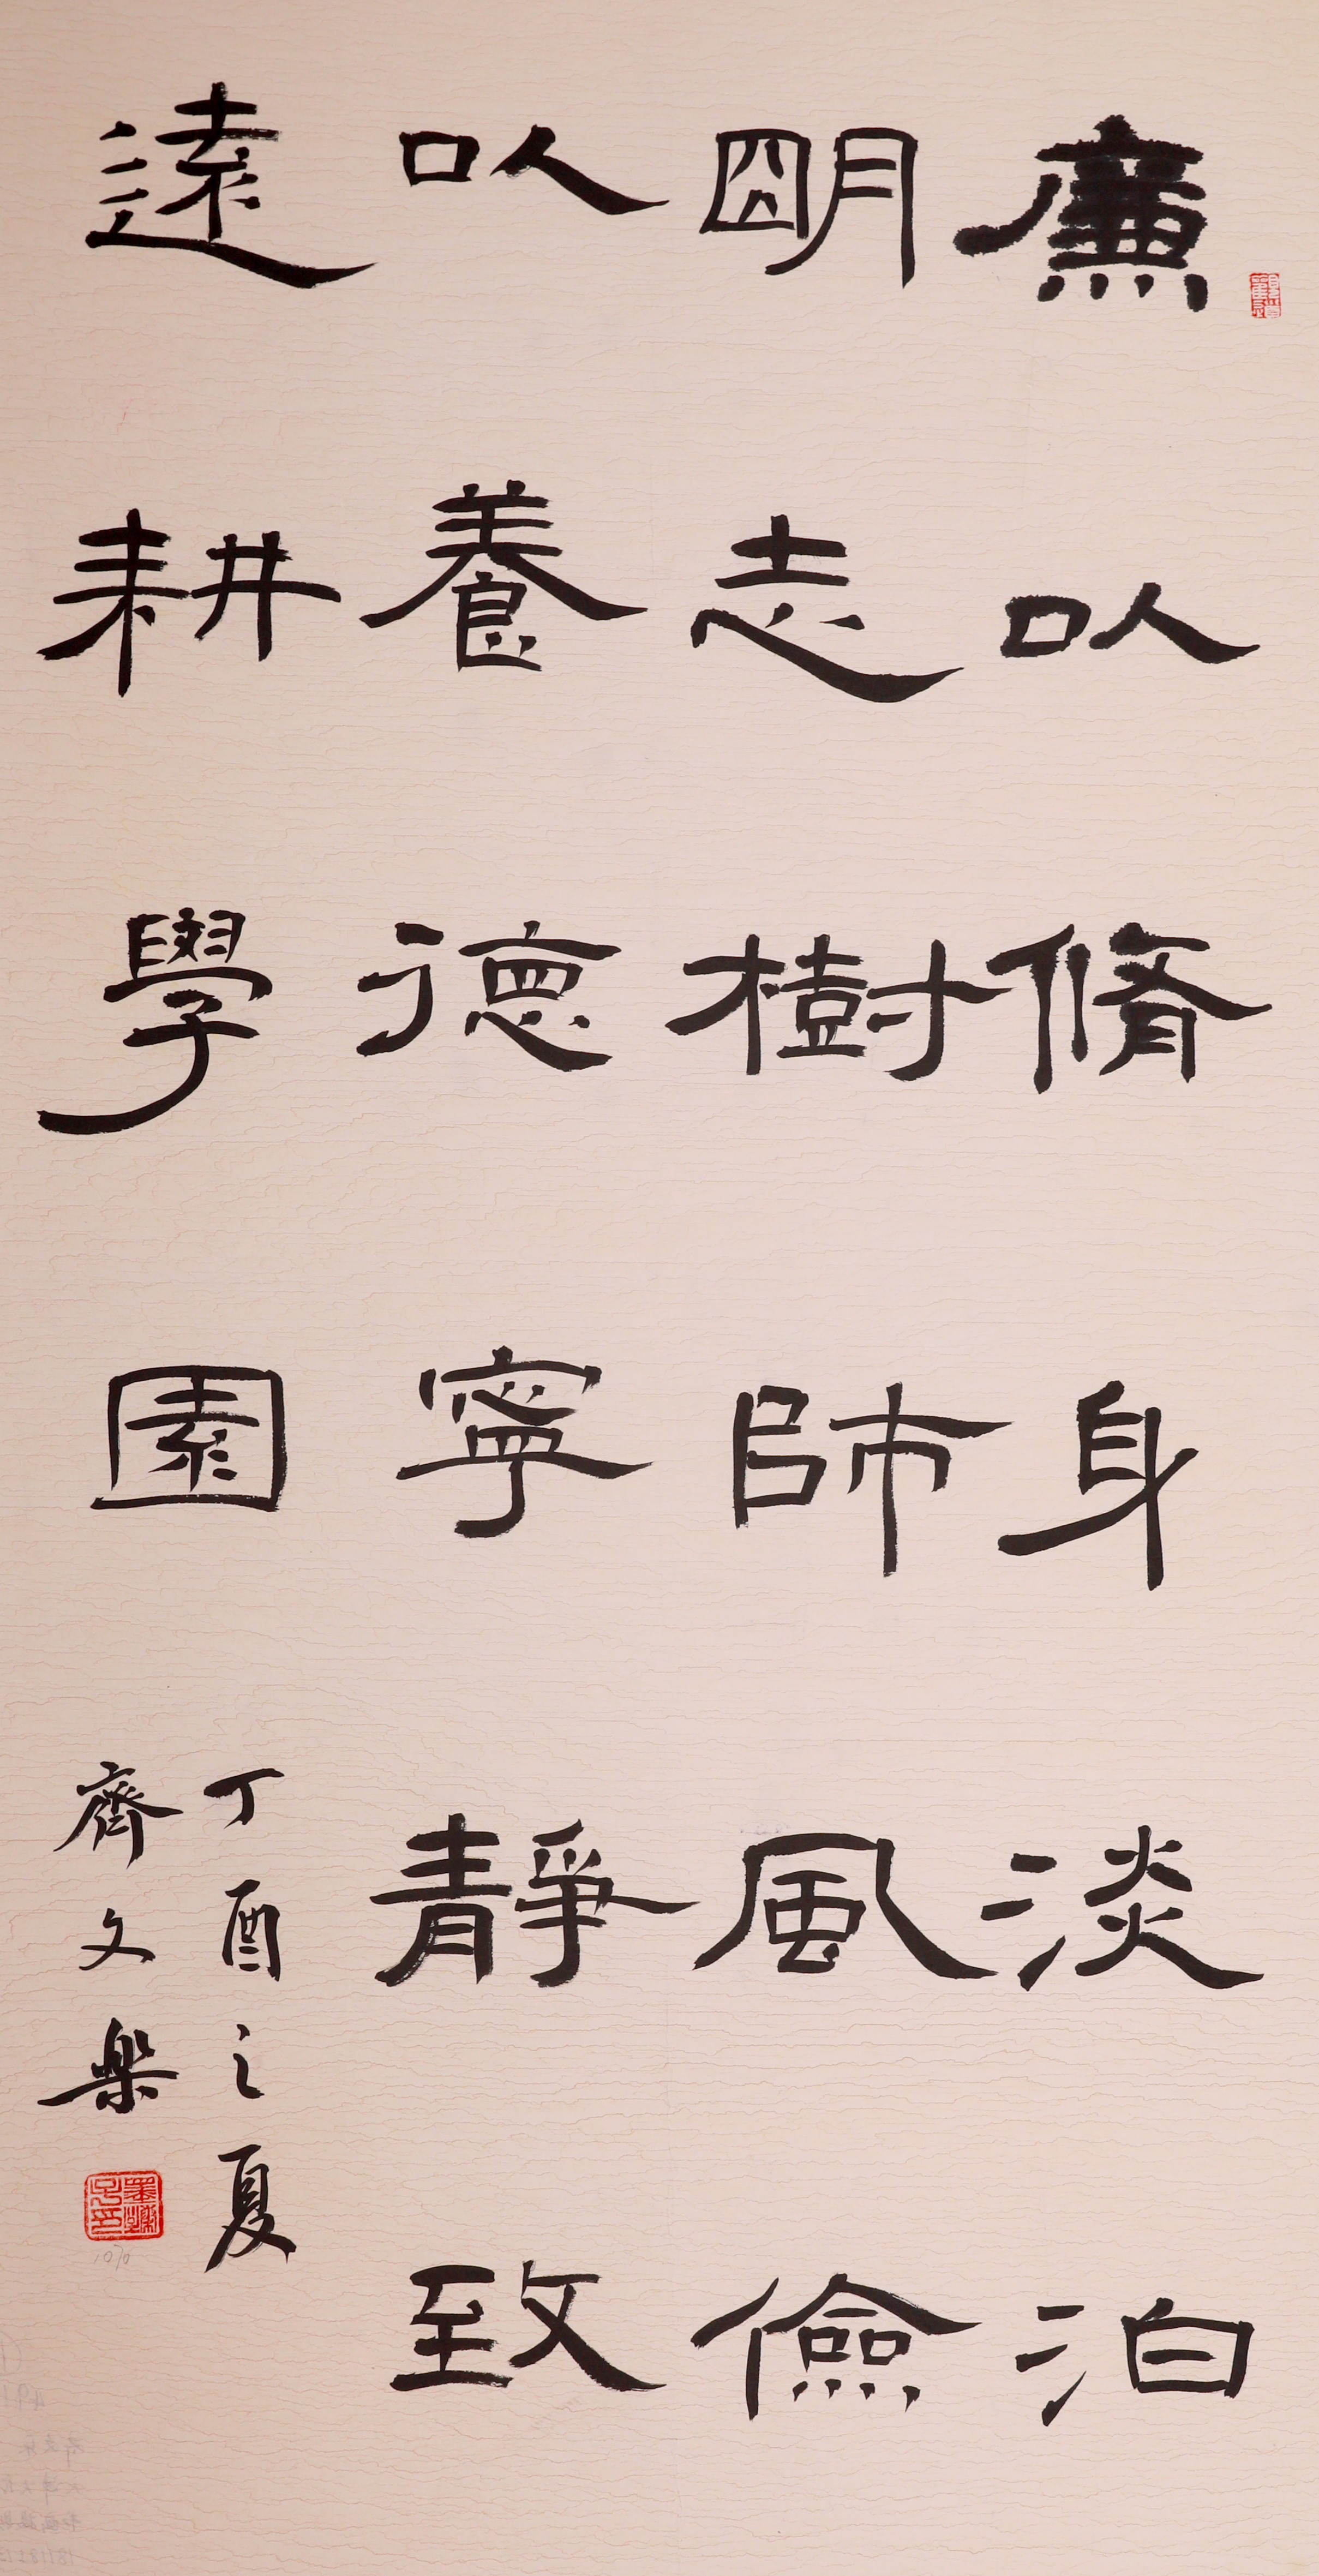 廉以脩身淡泊
明志樹師風儉
以養德寧靜致
遠耕學園
丁酉之夏
齊文樂